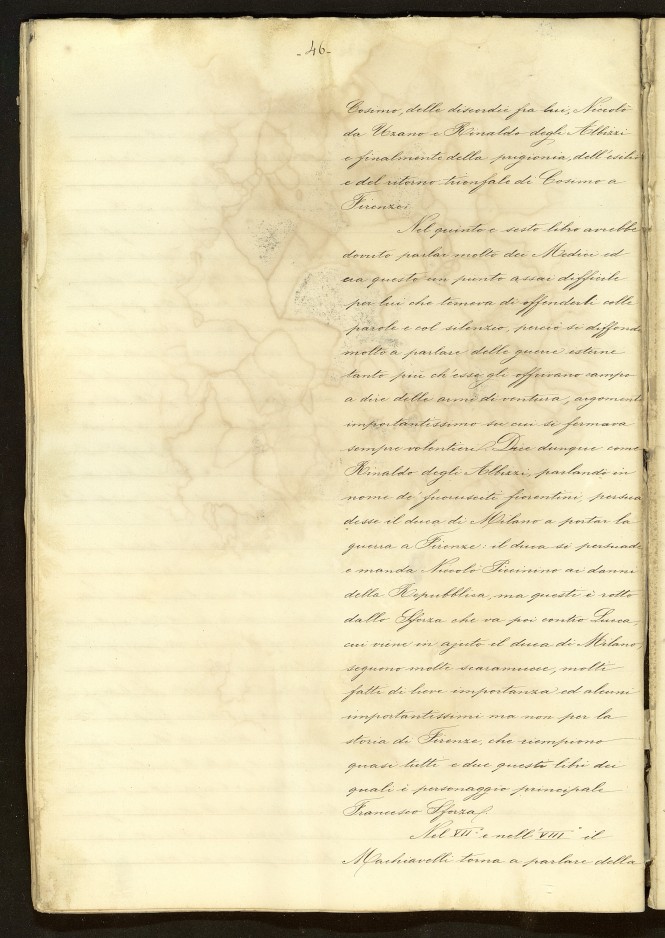 - 46 -
Cosimo, delle discordie fra lui, Niccolò
da Uzano e Rinaldo degli Albizzi
e finalmente della prigionia, dell'esilio
e del ritorno trionfale di Cosimo a
Firenze.
Nel quinto e sesto libro avrebbe
dovuto parlar molto dei Medici ed
era questo un punto assai difficile
per lui che temeva di offenderli colle
parole e col silenzio, perciò si diffonde
molto a parlare delle guerre esterne
tanto più ch'esse gli offrivano campo
a dire delle armi di ventura, argomento
importantissimo su cui si fermava
sempre volentieri. Dice dunque come
Rinaldo degli Albizzi, parlando in
nome de' fuorusciti fiorentini, persua
desse il duca di Milano a portar la
guerra a Firenze: il duca si persuade
e manda Niccolò Piccinino ai danni
della Repubblica, ma questi è rotto
dallo Sforza che va poi contro Lucca,
cui viene in ajuto il duca di Milano,
seguono molte scaramucce, molti
fatti di lieve importanza ed alcuni
importantissimi ma non per la
storia di Firenze, che riempiono
quasi tutti e due questi libri dei
quali è personaggio principale
Francesco Sforza.
Nel VII° e nell'VIII° il
Machiavelli torna a parlare della